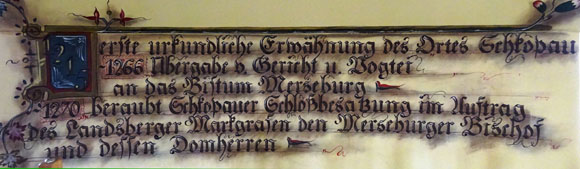 erste urkundliche Erwähnung des Ortes Schkopau
1266 Übergabe v. Gericht u. Vogtei
an das Bistum Merseburg
1270 beraubt Schkopauer Schloßbesatzung im Auftrag
des Landsberger Markgrafen den Merseburger Bischof
und dessen Domherren